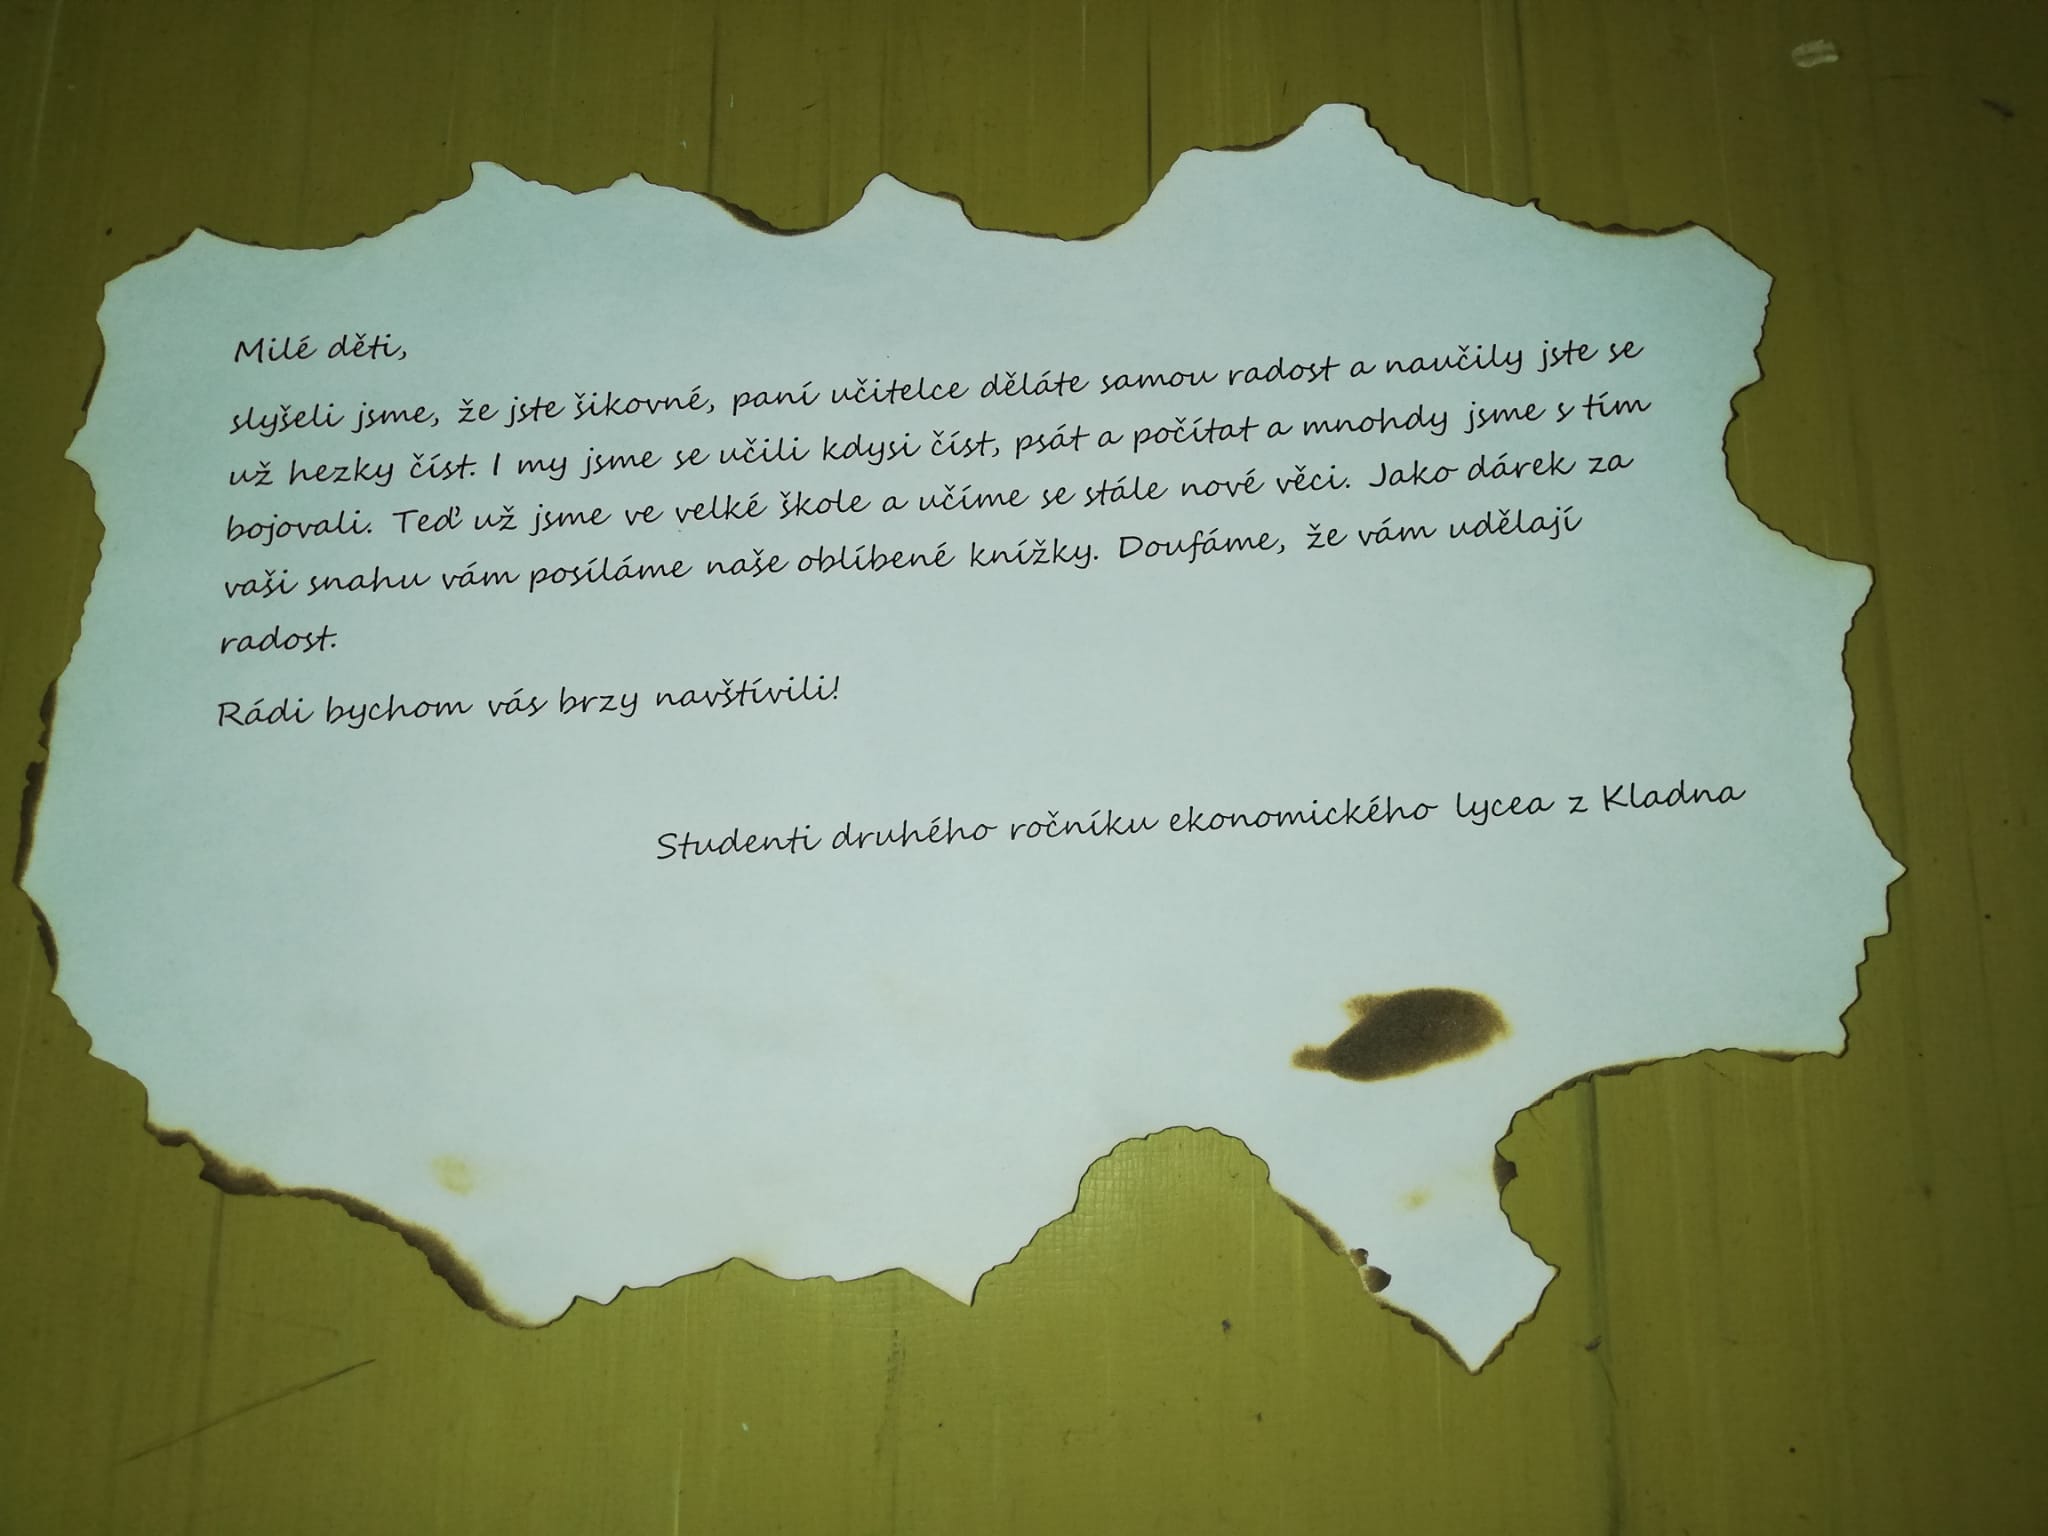 Milé děti,
slyšeli jsme, že jste šikovné, paní učitelce děláte samou radost a naučily jste se
už hezky číst. I my jsme se učili kdysi číst, psát a počítat a mnohdy jsme s tím
bojovali. Teď už jsme ve velké škole a učíme se stále nové věci. Jako dárek za
vaši snahu vám posíláme naše oblíbené knížky. Doufáme, že vám udělají
radost.
Rádi bychom vás brzy navštívili!
Studenti druhého ročníku ekonomického lycea z Kladna